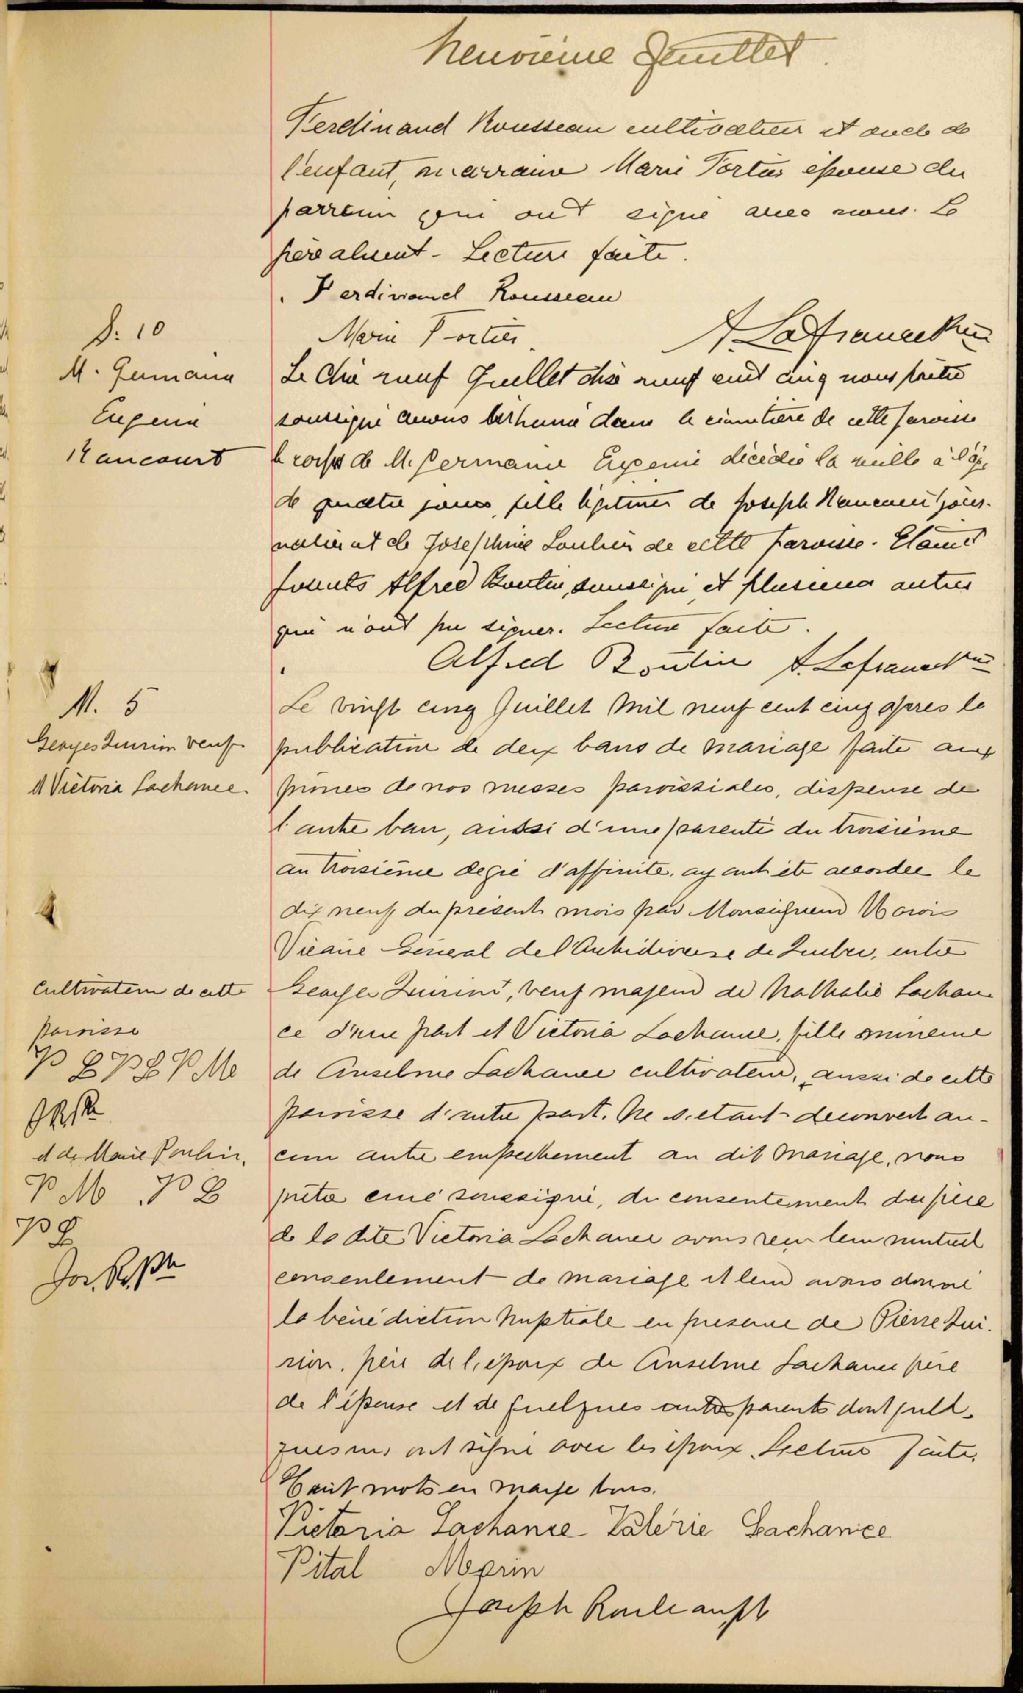 neuvième feuillet
Ferdinand Rousseau cultivateur et oncle de
l'enfant, marraine Marie Fortier épouse du
parrain qui ont signé avec nous. Le
père absent - Lecture faite.
Ferdinand Rousseau
Marie Fortier. A. Lafrance Ptre
S. 10
M. Germaine
Eugenie
Rancourt
Le dix neuf Juillet dix neuf cent cinq nous prêtre
soussigné avons inhumé dans le cimetière de cette paroisse
le corps de M. Germaine Eugenie décédée la veille à l'âge
de quatre jours, fille légitime de Joseph Rancourt jour-
nalier et de Josephine Loubier de cette paroisse. Etaient
présents Alfred Boutin, soussigné et plusieurs autres
qui n'ont pu signer. Lecture faite.
Alfred Boutin A. Lafrance Ptre
M. 5
Georges Quirion veuf
et Victoria Lachance.
Le vingt cinq Juillet mil neuf cent cinq après la
publication de deux bans de mariage faite aux
prônes de nos messes paroissiales, dispense de
l'autre ban, aussi d'une parenté du troisième
au troisième degré d'affinité ayant été accordée le
dix neuf du présent mois par Monseigneur Marois
Vicaire Général de l'Archidiocèse de Quebec, entre
George Quirion, veuf majeur de Nathalie Lachan-
ce d'une part et Victoria Lachance, fille mineure
de Anselme Lachance cultivateur, aussi de cette
paroisse d'autre part. Ne s'etant decouvert au-
cun autre empêchement au dit mariage, nous
prêtre curé soussigné, du consentement du père
de la dite Victoria Lachance avons reçu leur mutuel
consentement de mariage et leur avons donné
la bénédiction nuptiale en presence de Pierre Qui-
rion, père de l'époux de Anselme Lachance père
de l'épouse et de quelques autres parents dont quel-
ques uns ont signé avec les époux. Lecture faite.
Huit mots en marge bons.
cultivateur de cette
paroisse
P L P L V M
et de Marie Poulin,
V M P L
P L
Jos. R. Ptre
Victoria Lachance Valérie Lachance
Vital Morin
Joseph Rouleau Pt